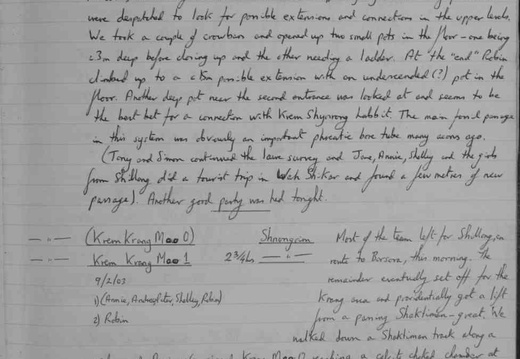 were despatched to look for possible extensions, and connections in the upper levels.
We took a couple of crowbars and opened up two small pots in the floor - one being
c3m deep before closing up and the other needing a ladder. At the "end" Robin
climbed up to a c15m possible extension with an undescended (?) pot in the
floor. Another deep pot near the second entrance was looked at and seems to be
the best bet for a connection with Krem Shynrong Labbit. The main fossil passage
in this system was obviously an important phreatic bore tube many aeons ago.
(Tony and Simon continued the lower survey and Jane, Annie, Shelley and the girls
from Shillong did a tourist trip in Wah Shikar and found a few metres of new
passage). Another good party was had tonight.
(Krem Krang Maa 0) Shnongrim Most of the team left for Shillong, en
Krem Krang Maa 1 2¾hrs route to Borsora, this morning. The
9/2/03 remainder eventually set off for the
1) (Annie, Andreas, Peter, Shelley, Robin) Krang area and providentially got a lift
2) Robin from a passing Shaktiman - great. We
walked down a Shaktiman track along a